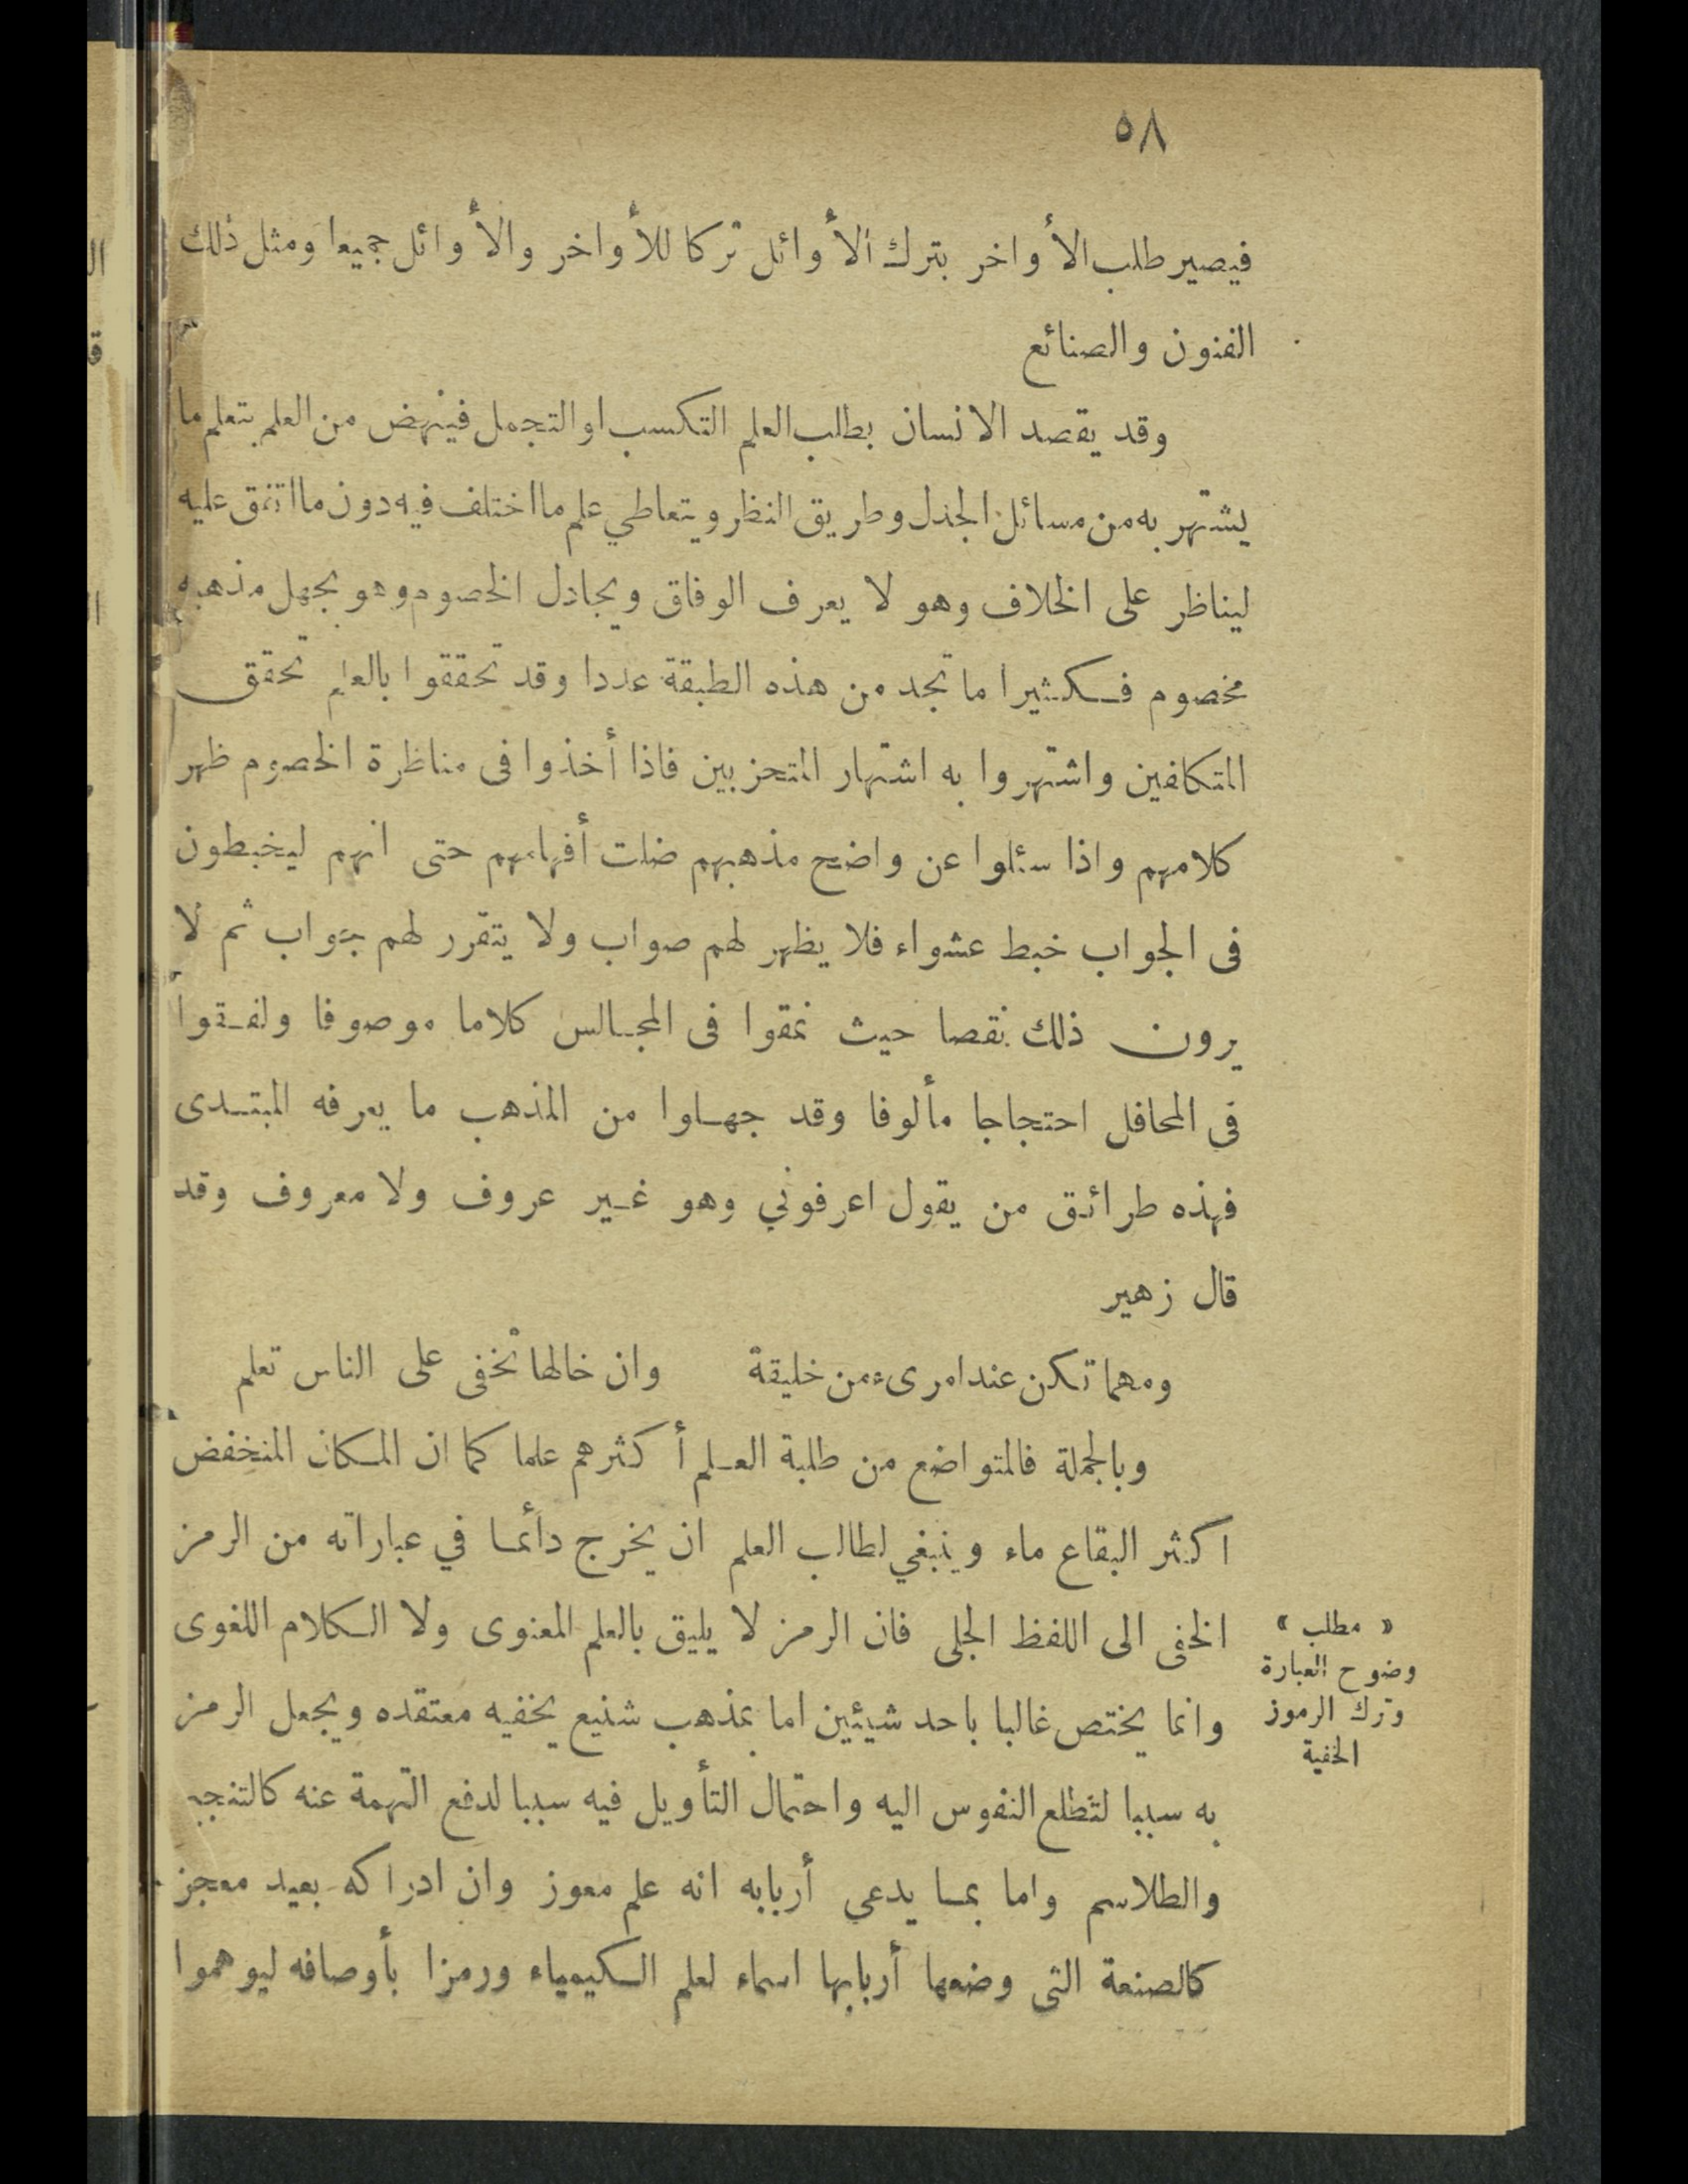 ٥٨
فيصير طلب الأواخر بترك الأوائل تركا للأواخر والأوائل جميعا ومثل ذلك
الفنون والصنائع
وقد يقصد الانسان بطلب العلم التكسب او التجمل فينهض من العلم بتعلم ما
يشتهر به من مسائل الجدل وطريق النظر ويتعاطي علم ما اختلف فيه دون ما اتفق عليه
ليناظر على الخلاف وهو لا يعرف الوفاق ويجادل الخصوم وهو يجهل مذهبه
مخصوم فكثيرا ما تجد من هذه الطبقة عددا وقد تحققوا بالعلم تحقق
المتكلفين واشتهروا به اشتهار المتحزبين فاذا أخذوا فى مناظرة الخصوم ظهر
كلامهم واذا سئلوا عن واضح مذهبهم ضلت أفهامهم حتى انهم ليخبطون
فى الجواب خبط عشواء فلا يظهر لهم صواب ولا يتقرر لهم جواب ثم لا
يرون ذلك نقصا حيث نمقوا فى المجالس كلاما موصوفا ولفقوا
فى المحافل احتجاجا مألوفا وقد جهلوا من المذهب ما يعرفه المبتدى
فهذه طرائق من يقول اعرفوني وهو غير عروف ولا معروف وقد
قال زهير
ومهما تكن عند امرىء من خليقة وان خالها تخفى على الناس تعلم
وبالجملة فالمتواضع من طلبة العلم أكثرهم علما كما ان المكان المنخفض
اكثر البقاع ماء وينبغي لطالب العلم ان يخرج دائما في عباراته من الرمز
الخفى الى اللفظ الجلى فان الرمز لا يليق بالعلم المعنوى ولا الكلام اللغوى
وانما يختص غالبا باحد شيئين اما بمذهب شنيع يخفيه معتقده ويجعل الرمز
به سببا لتطلع النفوس اليه واحتمال التأويل فيه سببا لدفع التهمة عنه كالتنجيم
والطلاسم واما بما يدعى أربابه انه علم معوز وان ادراكه بعيد معجز
كالصنعة التى وضعها أربابها اسماء لعلم الكيمياء ورمزا بأوصافه ليوهموا
« مطلب »
وضوح العبارة
وترك الرموز
الخفية